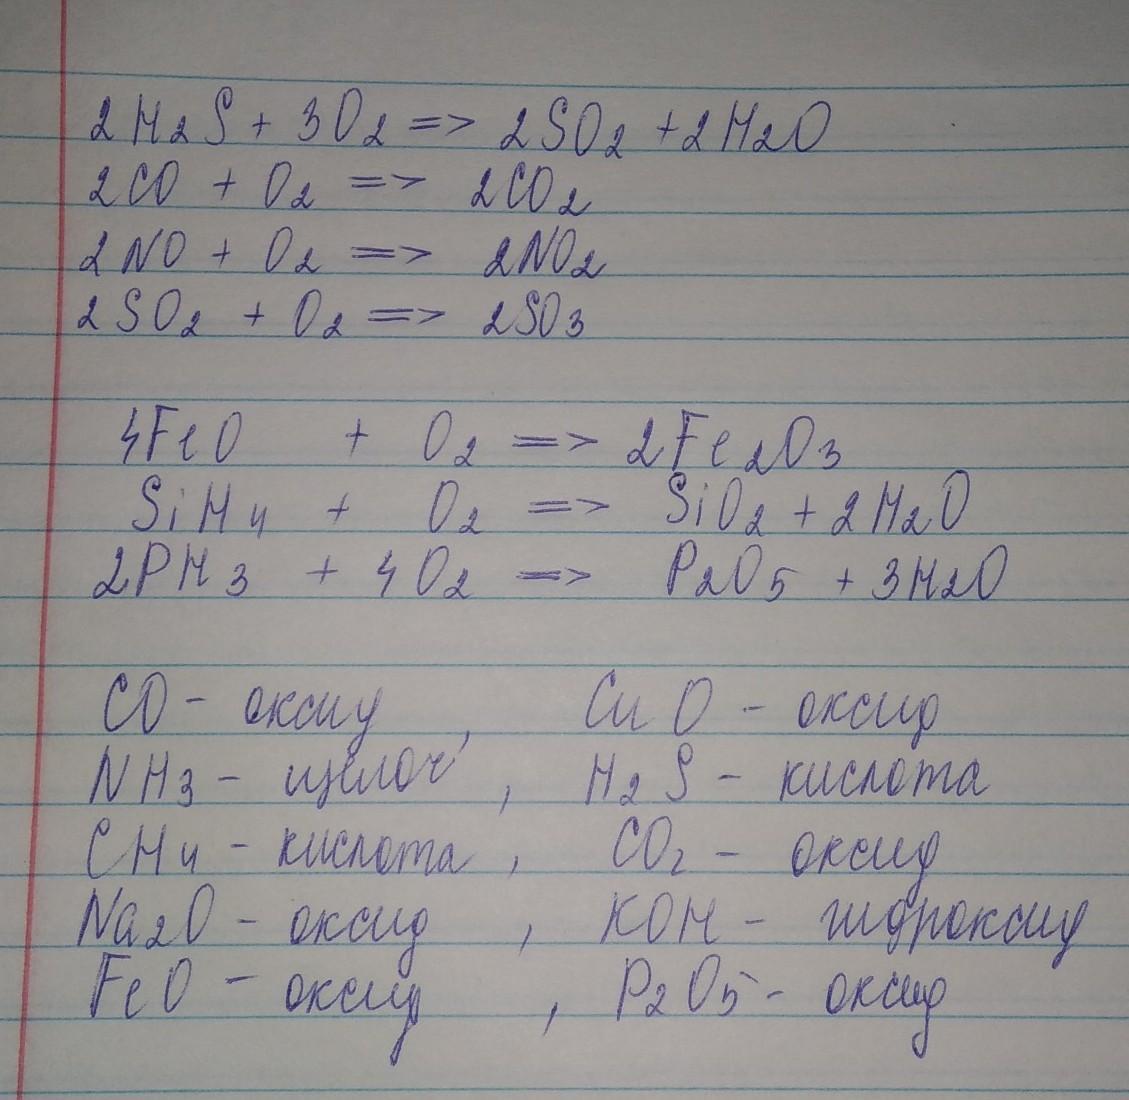 2H2S + 3O2 => 2SO2 + 2H2O
2CO + O2 => 2CO2
2NO + O2 => 2NO2
2SO2 + O2 => 2SO3
4FeO + O2 => 2Fe2O3
SiH4 + O2 => SiO2 + 2H2O
2PH3 + 4O2 => P2O5 + 3H2O
CO - оксид, CuO - оксид
NH3 - щелоч, H2S - кислота
CH4 - кислота, CO2 - оксид
Na2O - оксид, KOH - гидроксид
FeO - оксид, P2O5 - оксид